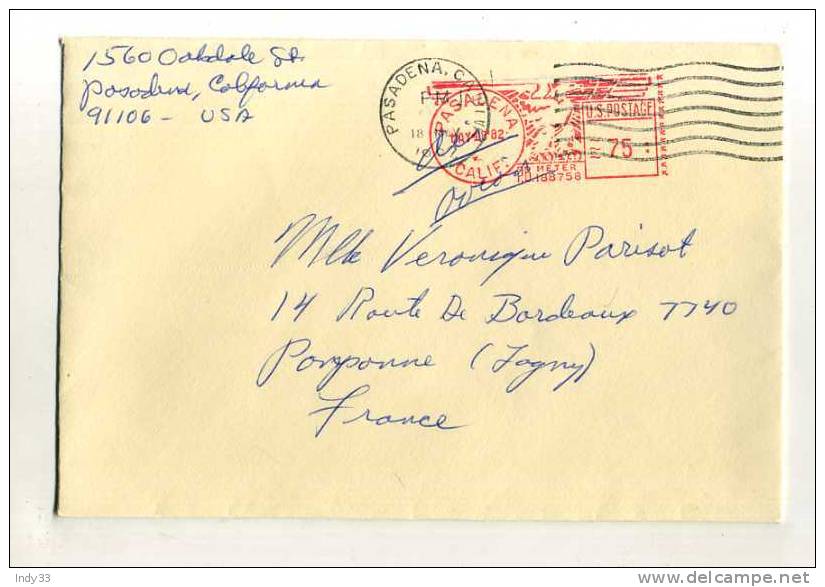 1560 Oakdale St.
Pasadena, California
91106 - USA
PASADENA, CALIF
PM
18 MAY
PASADENA
MAY 18 '82
CALIF.
U.S. POSTAGE
75
PB METER
1188758
Mlle Veronique Parisot
14 Route De Bordeaux 7740
Pomponne (Lagny)
France
Indy33
www.delcampe.net